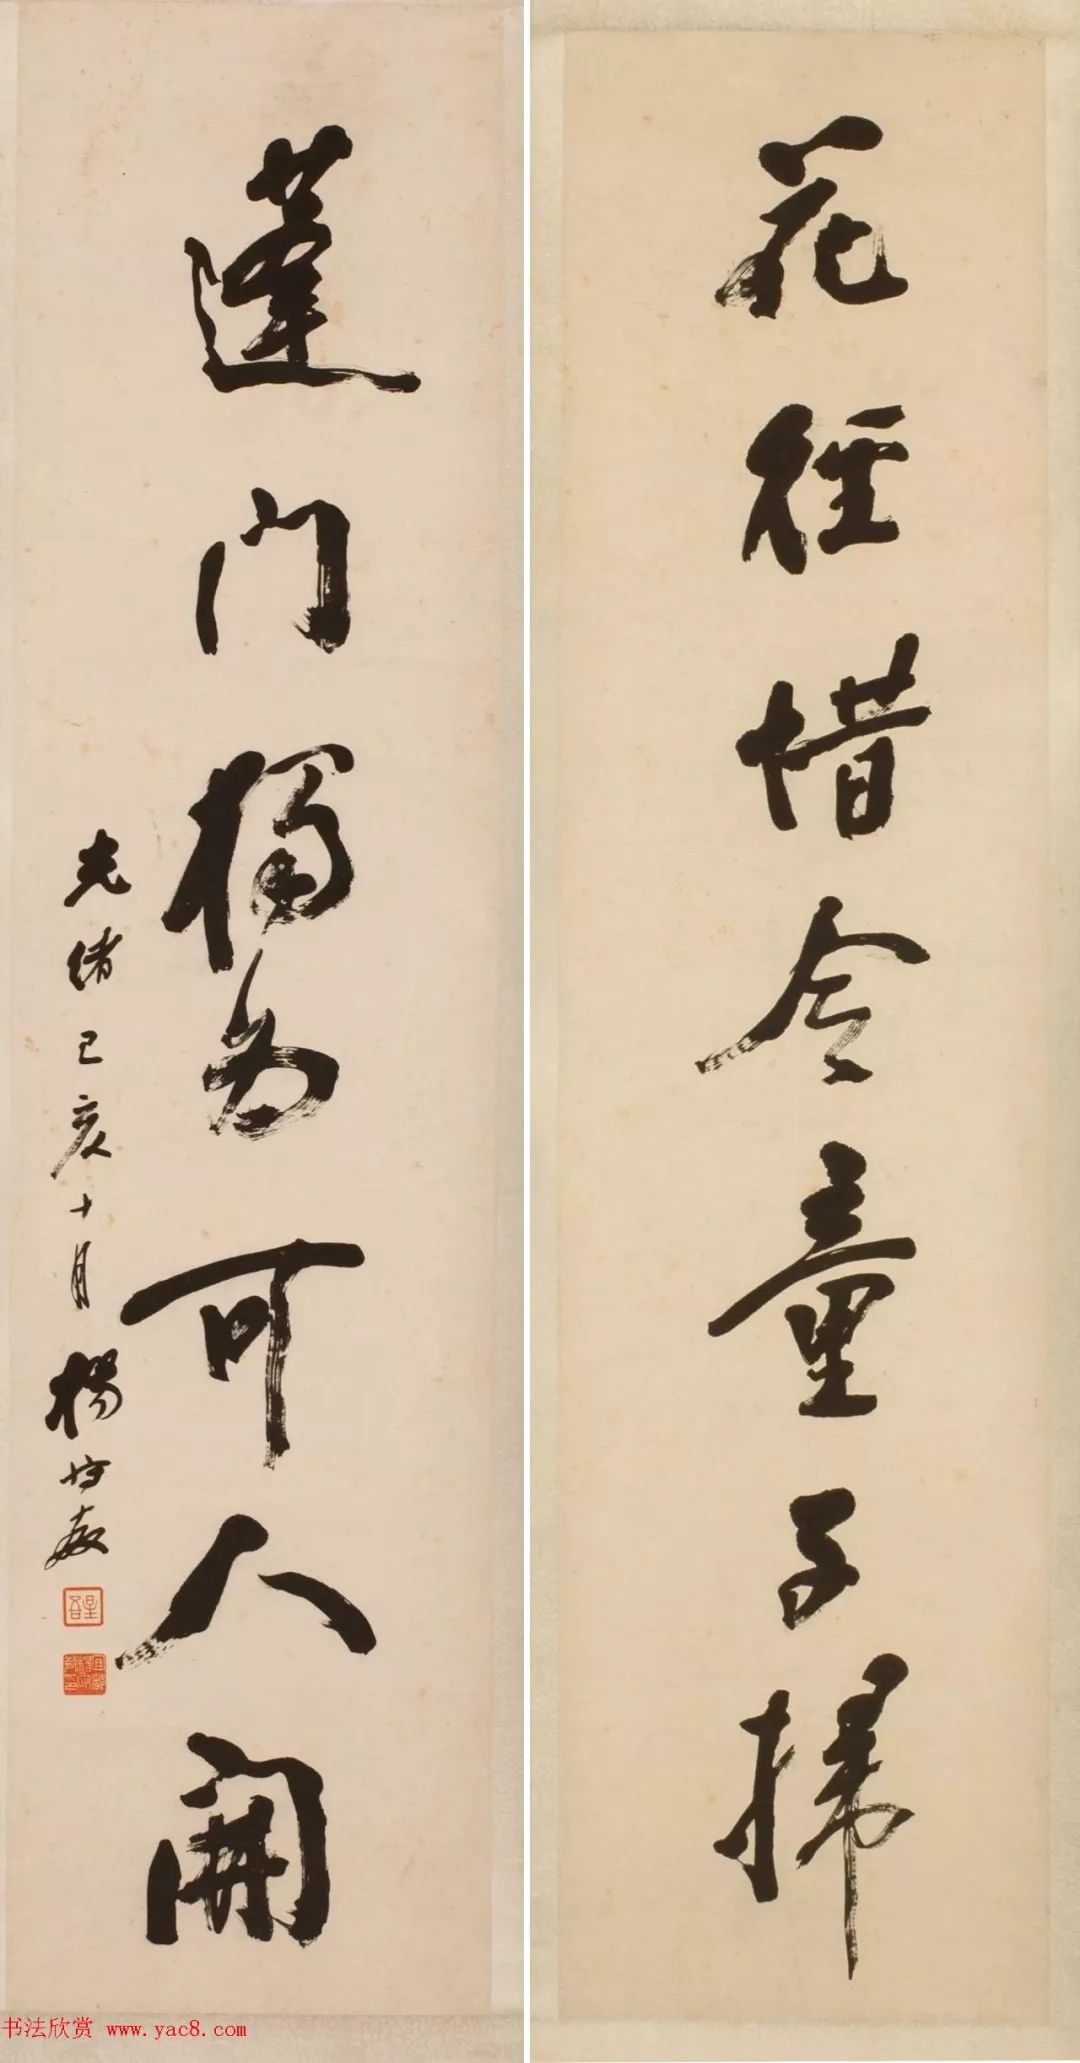 花徑惜令童子掃
蓬門獨為可人開
光緒己亥十月楊守敬
星吾
書法欣賞 www.yac8.com